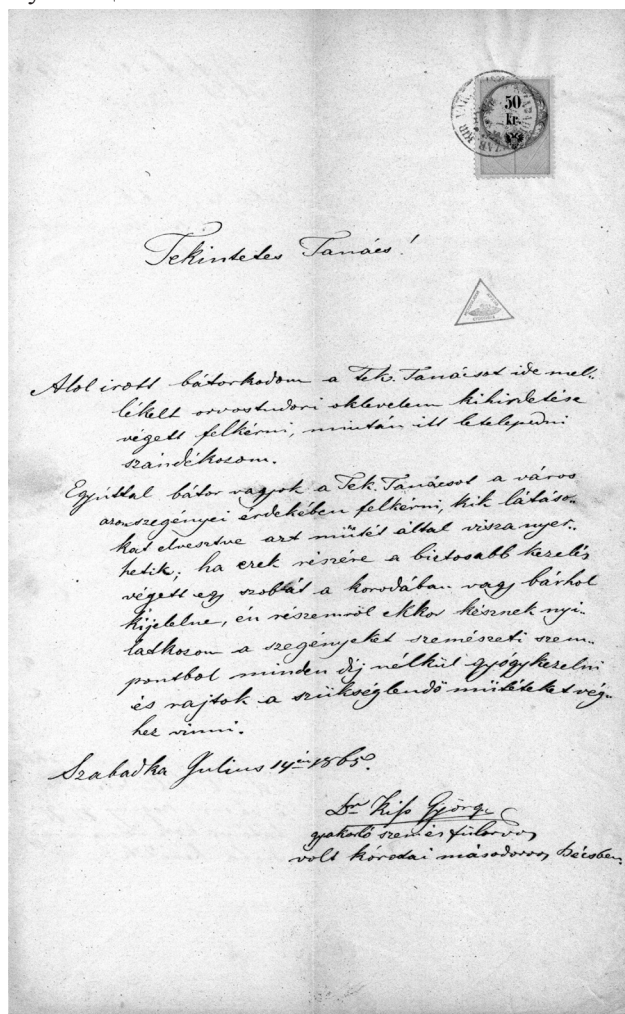 50
kr.
Tekintetes Tanács!
Alol irott bátorkodom a Tek. Tanácsot ide mel-
lékelt orvostudori oklevelem kihirdetése
végett felkérni, miután itt letelepedni
szándékozom.
Egyúttal bátor vagyok a Tek. Tanácsot a város
azon szegényei érdekében felkérni, kik látáso-
kat elvesztve azt műtét által vissza nyer-
hetik; ha ezek részére a biztosabb kezelés
végett egy szobát a korodában vagy bárhol
kijelelne, én részemről ekkor késznek nyi-
latkozom a szegényeket szemészeti szem-
pontbol minden díj nélkül gyógykezelni
és rajtok a szükséglendő műtéteket vég-
hez vinni.
Szabadka Julius 14én 1865.
Dr Kiss György
gyakorló szem és fülorvos
volt kórodai másodorvos Bécsben.